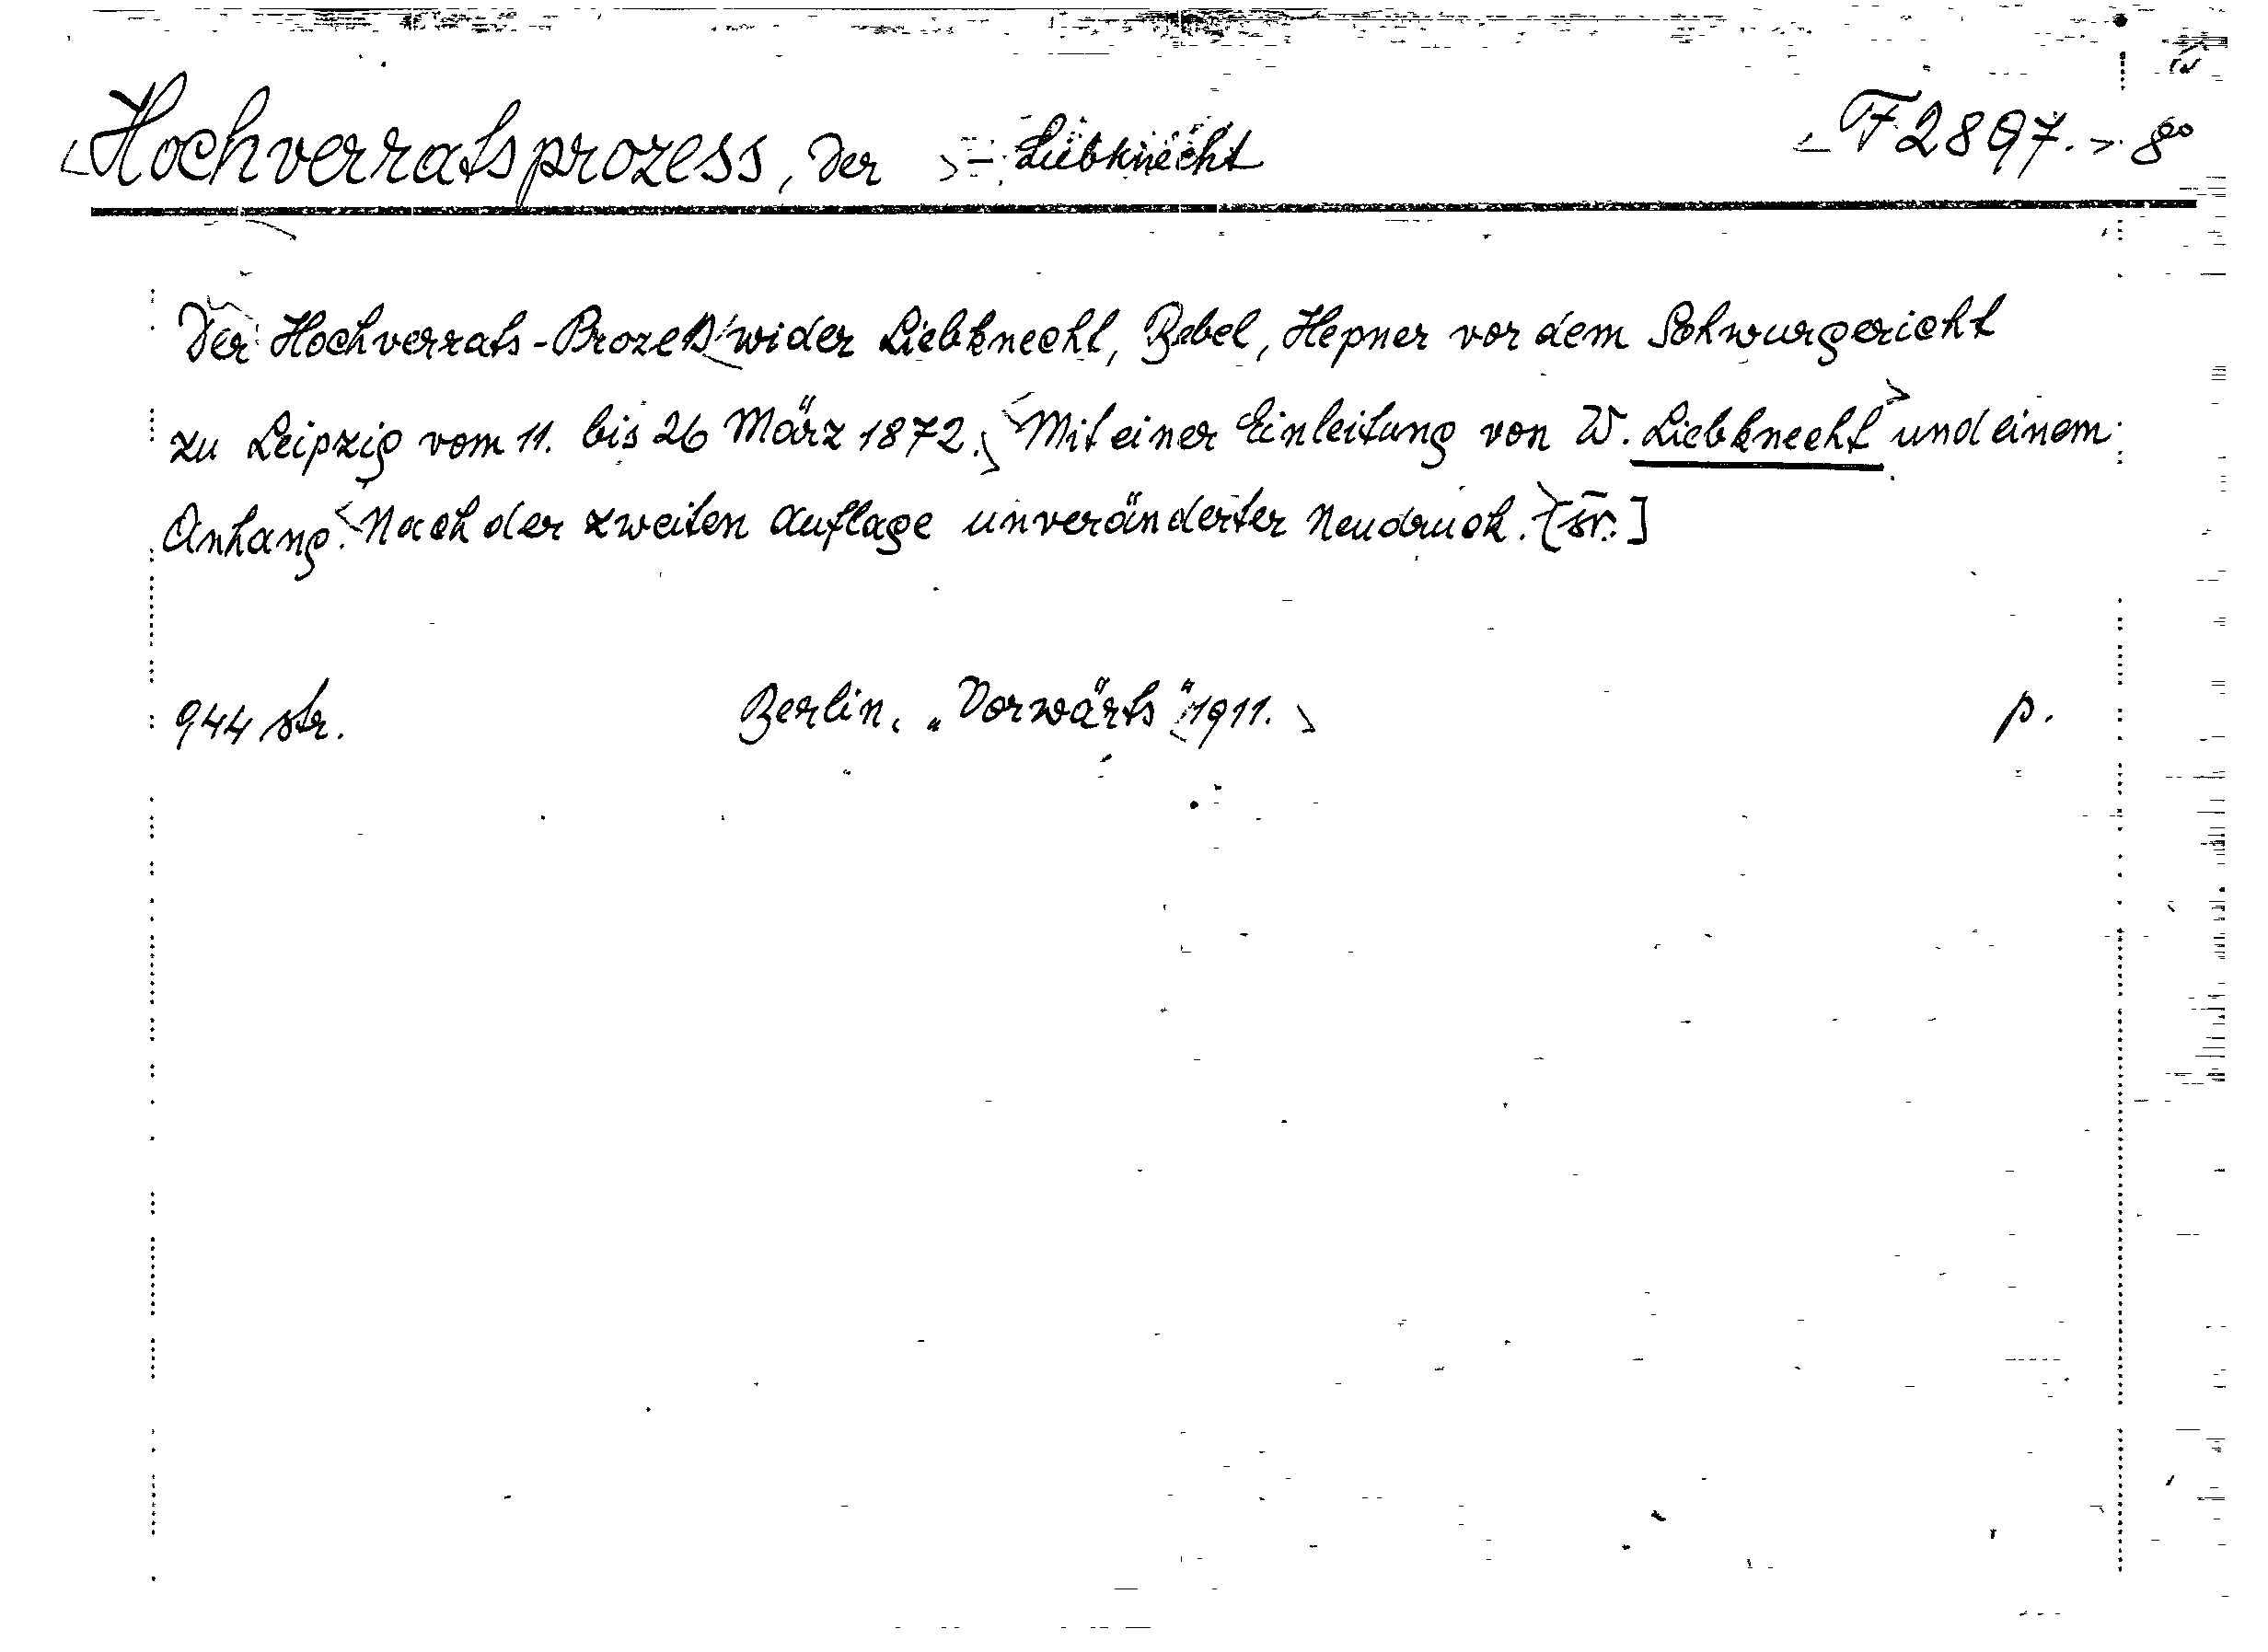 <Hochverratsprozess, Der > - Liebknecht <F 2897.> 8°
Der Hochverrats-Prozeß wider Liebknecht, Bebel, Hepner vor dem Schwurgericht
zu Leipzig vom 11. bis 26 März 1872.> <Mit einer Einleitung von W. Liebknecht> und einem
Anhang. <Nach der zweiten Auflage unveränderter Neudruck.> [šv.]
944 str. Berlin, „Vorwärts" <1911.> p.